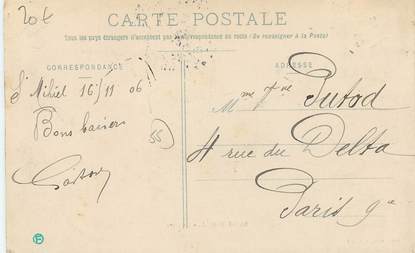 20€
CARTE POSTALE
Tous les pays étrangers n'acceptent pas la correspondance au recto (Se renseigner à la Poste)
CORRESPONDANCE
ADRESSE
St Mihiel 16/11 06
Bons baisers
55
Gaston
Mme Vve Putod
4 rue du Delta
Paris 9e